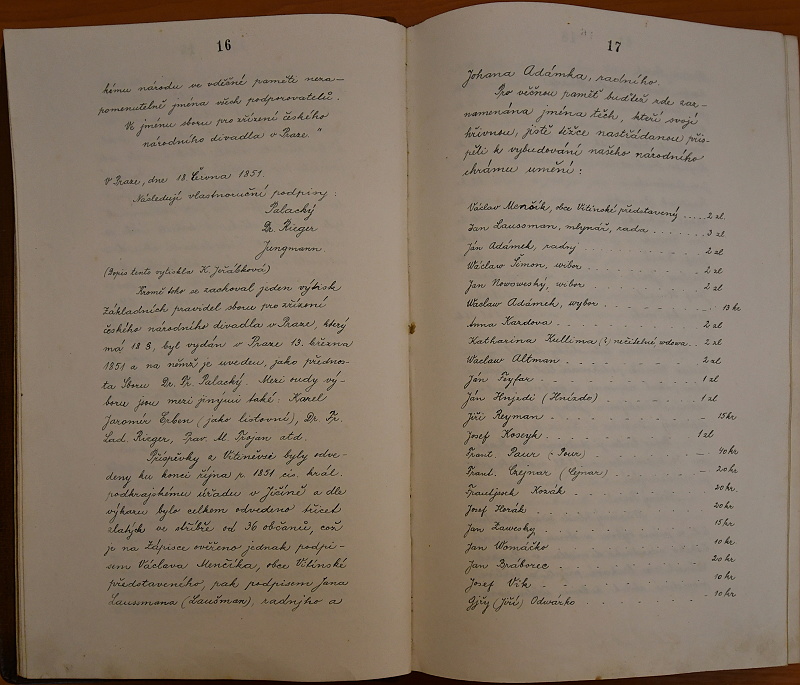 16
kému národu ve vděčné paměti neza-
pomenutelné jména všech podporovatelů.
Ve jménu sboru pro zřízení českého
národního divadla v Praze."
V Praze, dne 18. Června 1851.
Následují vlastnoruční podpisy:
Palacký
Dr. Rieger
Jungmann.
(Dopis tento vytiskla K. Jeřábková)
Kromě toho se zachoval jeden výtisk
Základních pravidel sboru pro zřízení
českého národního divadla v Praze, který
má 18 §, byl vydán v Praze 13. března
1851 a na němž je uveden, jako přednos-
ta Sboru Dr. Fr. Palacký. Mezi oudy vý-
boru jsou mezi jinými také: Karel
Jaromír Erben (jako listovní), Dr. Fr.
Lad. Rieger, Prav. M. Trojan atd.
Příspěvky z Vitiněvsi byly odve-
deny ku konci října r. 1851 cís. král.
podkrajskému úřadu v Jičíně a dle
výkazu bylo celkem odvedeno třicet
zlatých ve stříbře od 36 občanů, což
je na zápisce ověřeno jednak podpi-
sem Václava Menčíka, obce Vitínské
představeného, pak podpisem Jana
Laussmana (Laušman), radnjho a
17
Johana Adámka, radního.
Pro věčnou paměť buďtež zde zaz-
namenána jména těch, kteří svojí
hřivnou, jistě těžce nastřádanou přis-
pěli k vybudování našeho národního
chrámu umění:
Václav Menčík, obce Vitínské představený .... 2 zl
Jan Laussman, mlynář, rada ....... 3 zl
Ján Adámek, radný ....... 2 zl
Wáclaw Šimon, wibor ....... 2 zl
Jan Nowoweský, wibor ....... 2 zl
Wáclaw Adámek, wybor ....... 13 kr
Anna Kazdova ....... 2 zl
Katharina Kullima (?) nečitelné, wdowa .. 2 zl
Wáclaw Altman ....... 2 zl
Ján Feyfar ....... 1 zl
Ján Hnjzdi (Hnízdo) ....... 1 zl
Jiří Reyman ....... 15 kr
Josef Koseyk ....... 1 zl
Frant. Paur (Pour) ....... 40 kr
Frant. Czejnar (Cejnar) ....... 20 kr
Frantjsek Kozák ....... 20 kr.
Josef Horák ....... 20 kr
Jan Zaweský ....... 15 kr
Jan Womáčko ....... 10 kr
Jan Bráborec ....... 20 kr
Josef Vik ....... 10 kr
Gjřy (Jiří) Odwárko ....... 10 kr